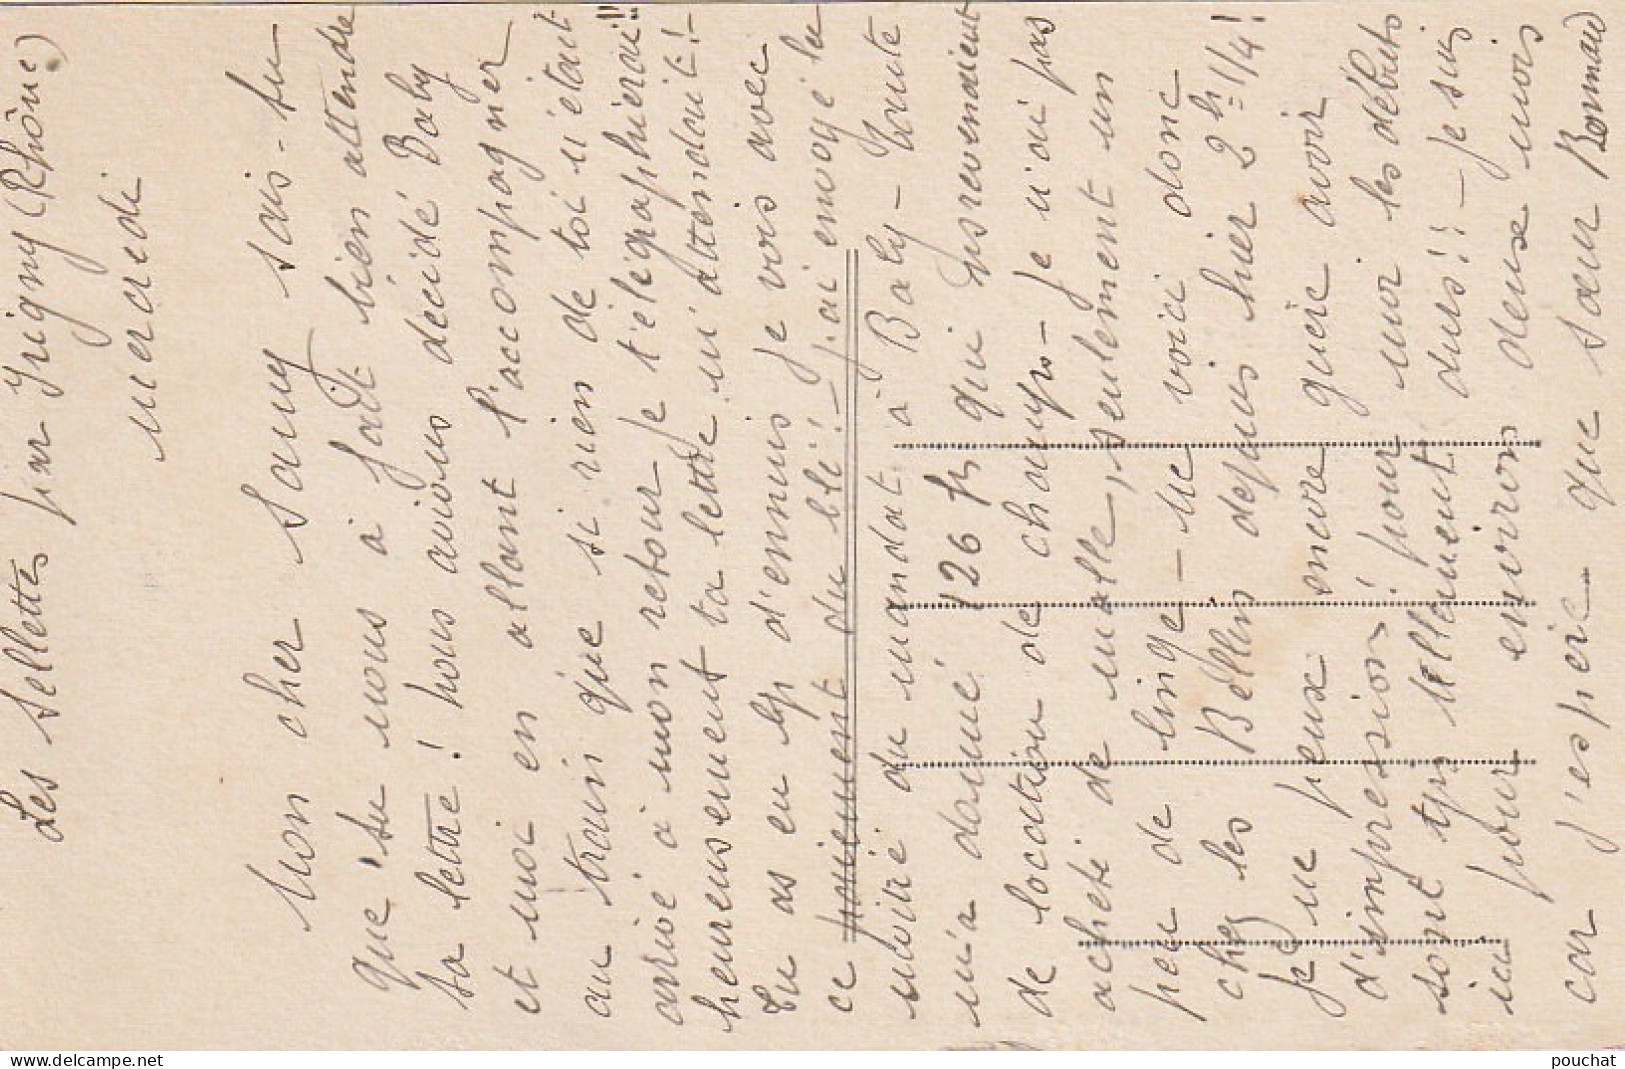 Les Sellettes par Irigny (Rhône)
mercredi
Mon cher Samy sais-tu
que tu nous a fait bien attendre
ta lettre ! nous avions décidé Baby
et moi en allant l'accompagner
au train que si rien de toi n'était
arrivé à mon retour je t'élégraphierai!!
heureusement ta lettre m'attendait !-
Tu as eu bp d'ennuis je vois avec
ce paiement du blé ! - j'ai envoyé la
moitié du mandat à Baby - Tante
m'a donné 126 frs qui
de location de champs - je n'ai pas
acheté de malle, seulement un
peu de linge - me voici donc
chez les Bellin depuis hier 2 h 1/4 !
je ne peux encore guère avoir
d'impression ! pour moi les débuts
sont tjrs tellement durs !! - je suis
ici pour environ deux mois
car j'espère que sœur
pouchat
delcampe.net